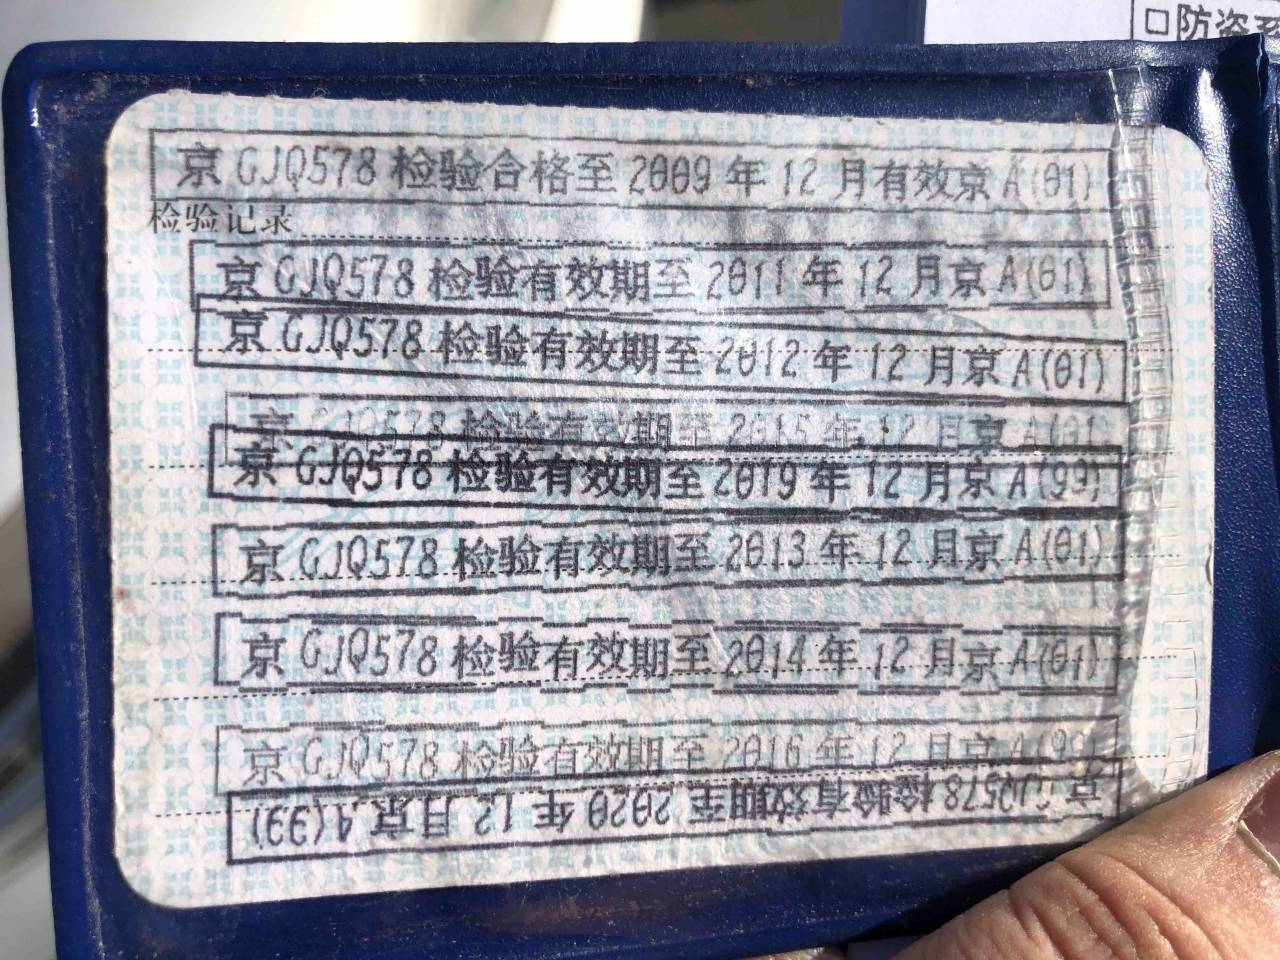 □防盗
京GJQ578检验合格至2009年12月有效京A(01)
检验记录
京GJQ578检验有效期至2011年12月京A(01)
京GJQ578检验有效期至2012年12月京A(01)
京GJQ578检验有效期至2015年12月京A(01
京GJQ578检验有效期至2019年12月京A(99)
京GJQ578检验有效期至2013年12月京A(01)
京GJQ578检验有效期至2014年12月京A(01)
京GJQ578检验有效期至2016年12月京A(99)
京GJQ578检验有效期至2020年12月京A(99)